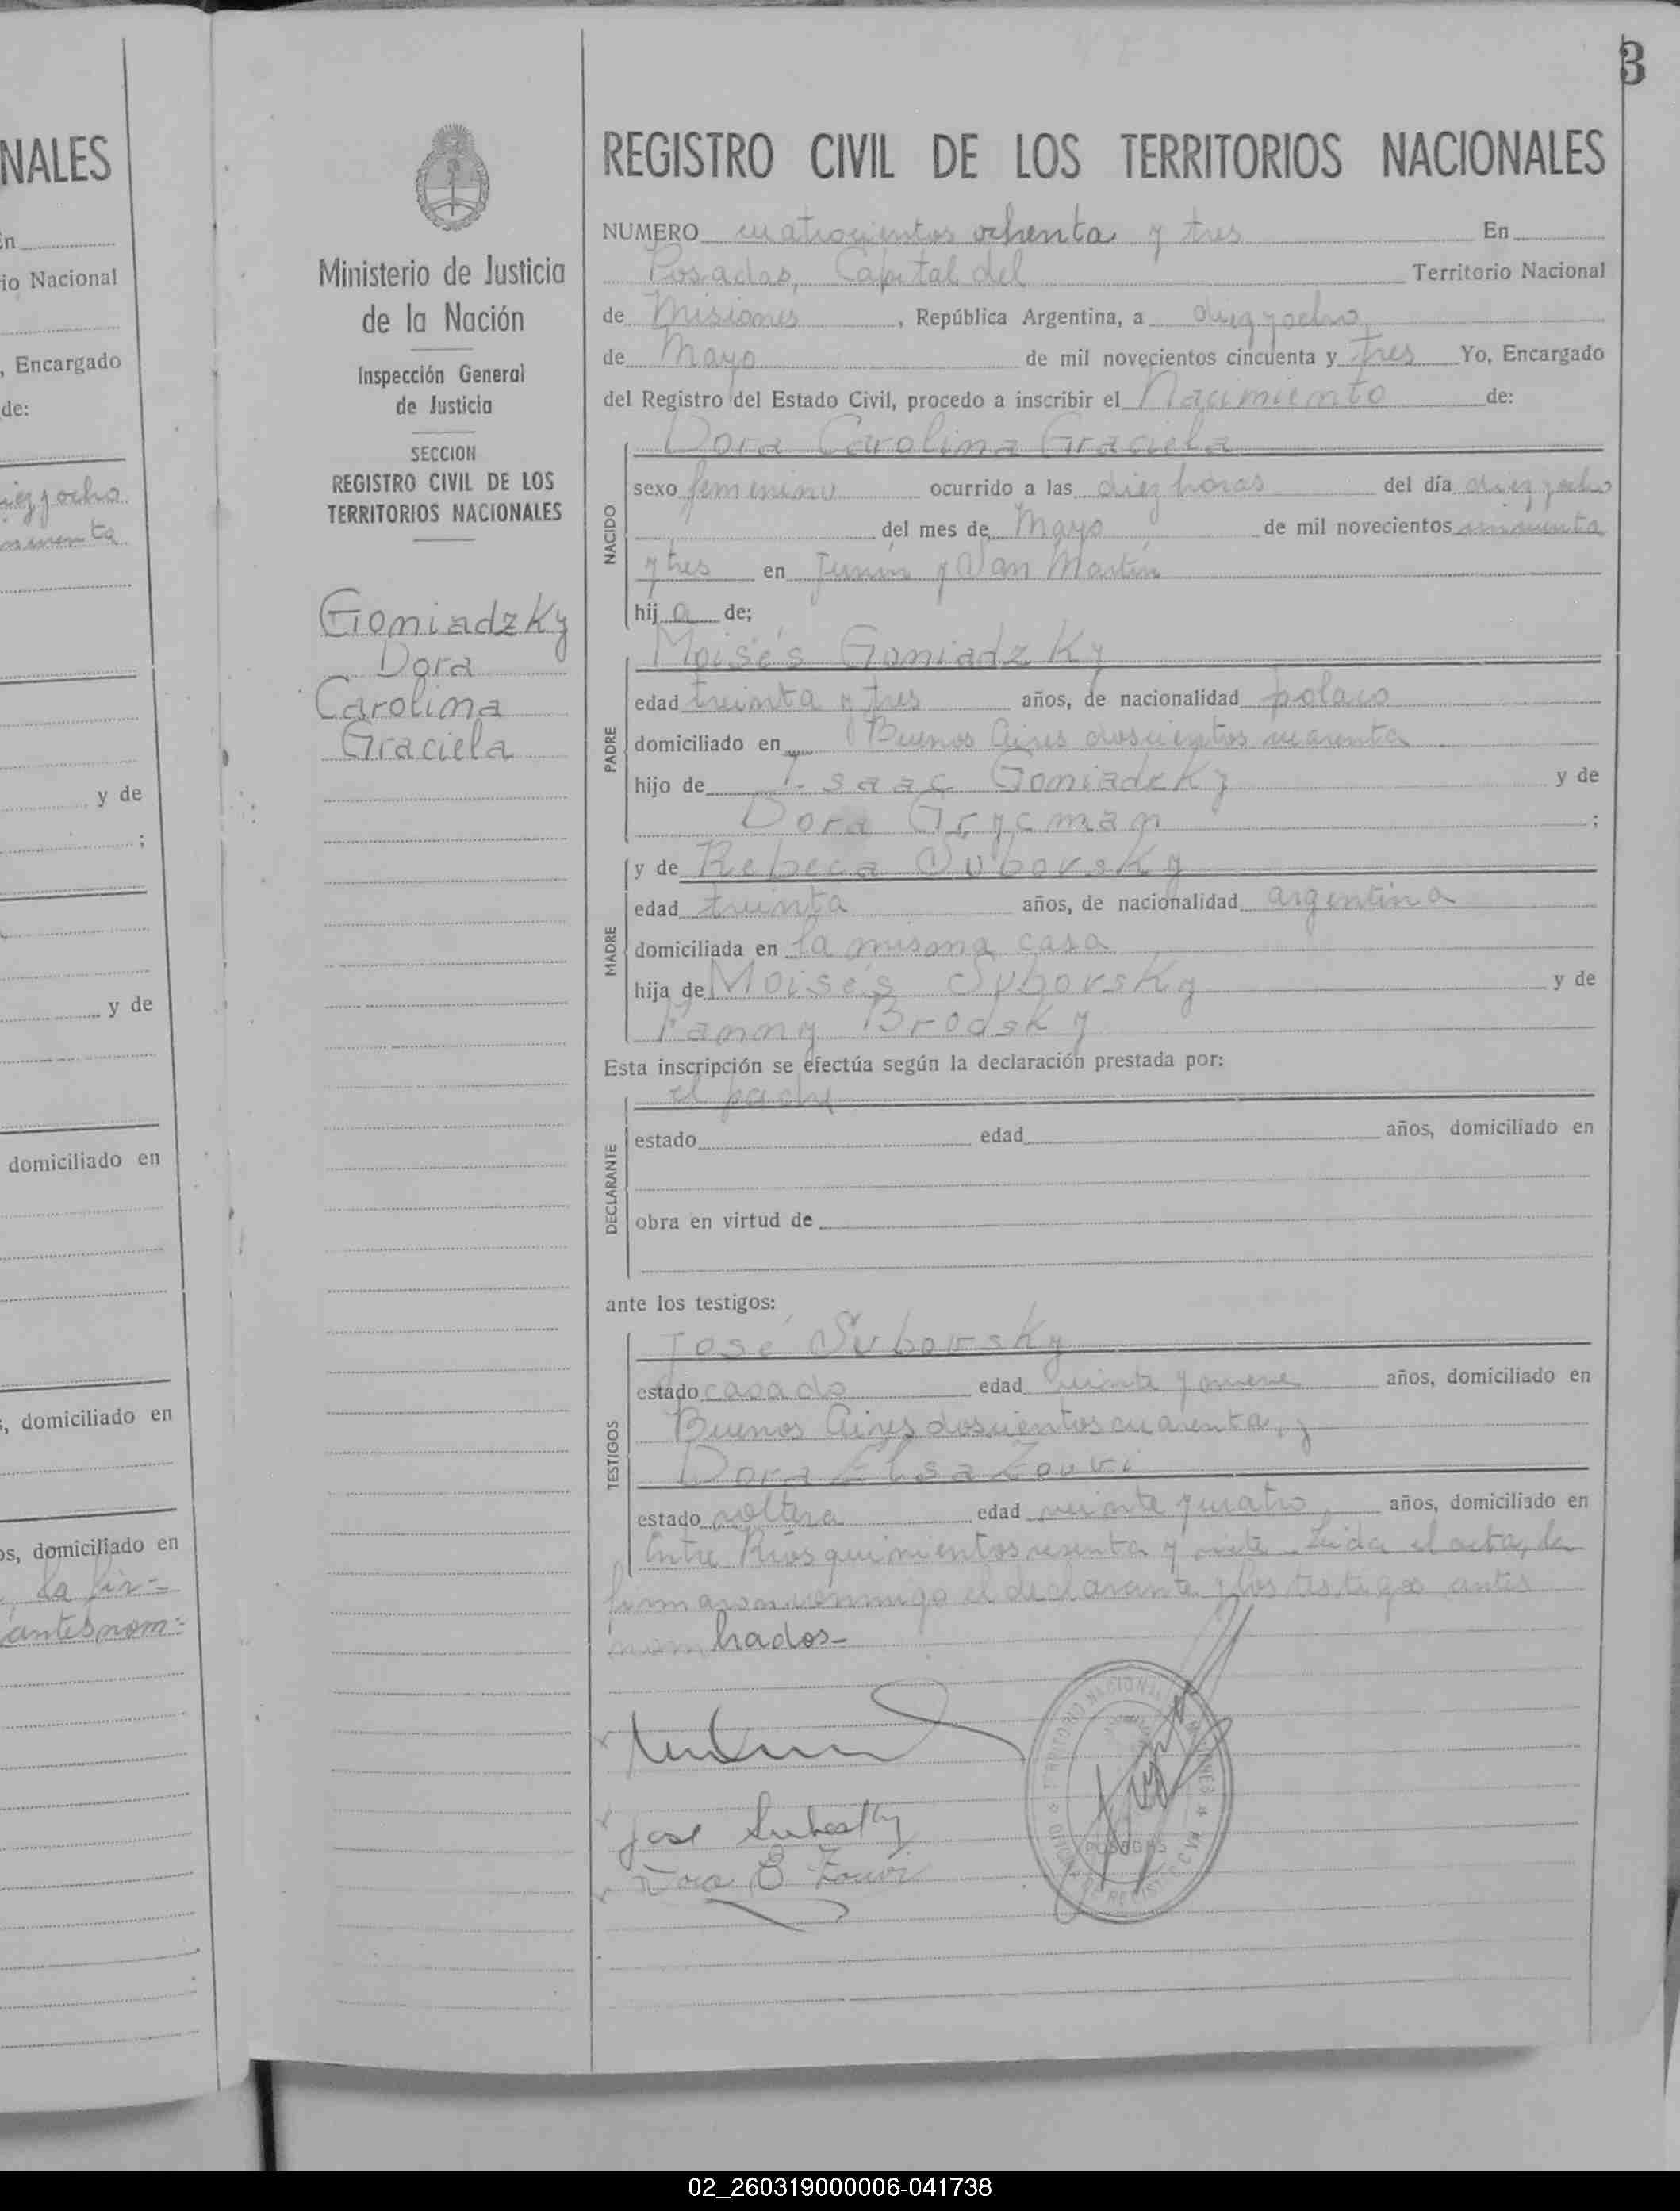 3
NALES
En
io Nacional
, Encargado
de:
iez y ocho
y de
;
y de
domiciliado en
s, domiciliado en
os, domiciliado en
la fir=
antes nom=
Ministerio de Justicia
de la Nación
Inspección General
de Justicia
SECCION
REGISTRO CIVIL DE LOS
TERRITORIOS NACIONALES
Goniadzky
Dora
Carolina
Graciela
REGISTRO CIVIL DE LOS TERRITORIOS NACIONALES
NUMERO cuatrocientos ochenta y tres En
Posadas, Capital del Territorio Nacional
de Misiones, República Argentina, a diez y ocho
de Mayo de mil novecientos cincuenta y tres Yo, Encargado
del Registro del Estado Civil, procedo a inscribir el Nacimiento de:
Dora Carolina Graciela
NACIDO
sexo femenino ocurrido a las diez horas del día diez y ocho
del mes de Mayo de mil novecientos cincuenta
y tres en Junín y San Martín
hija de;
Moisés Goniadzky
PADRE
edad treinta y tres años, de nacionalidad polaco
domiciliado en Buenos Aires doscientos cuarenta
hijo de Isaac Goniadzky y de
Dora Grycman ;
y de Rebeca Subovsky
MADRE
edad treinta años, de nacionalidad argentina
domiciliada en la misma casa
hija de Moisés Subovsky y de
Fanny Brodsky
Esta inscripción se efectúa según la declaración prestada por:
el padre
DECLARANTE
estado edad años, domiciliado en
obra en virtud de
ante los testigos:
José Subovsky
TESTIGOS
estado casado edad veinte y nueve años, domiciliado en
Buenos Aires doscientos cuarenta, y
Dora Elsa Zouvi
estado soltera edad veinte y cuatro, años, domiciliado en
Entre Ríos quinientos sesenta y siete. Leida el acta, la
firmaron conmigo el declarante y los testigos antes
nombrados-
José Subosky
Dora E Zouvi
TERRITORIO NACIONAL MISIONES
POSADAS
02_260319000006-041738